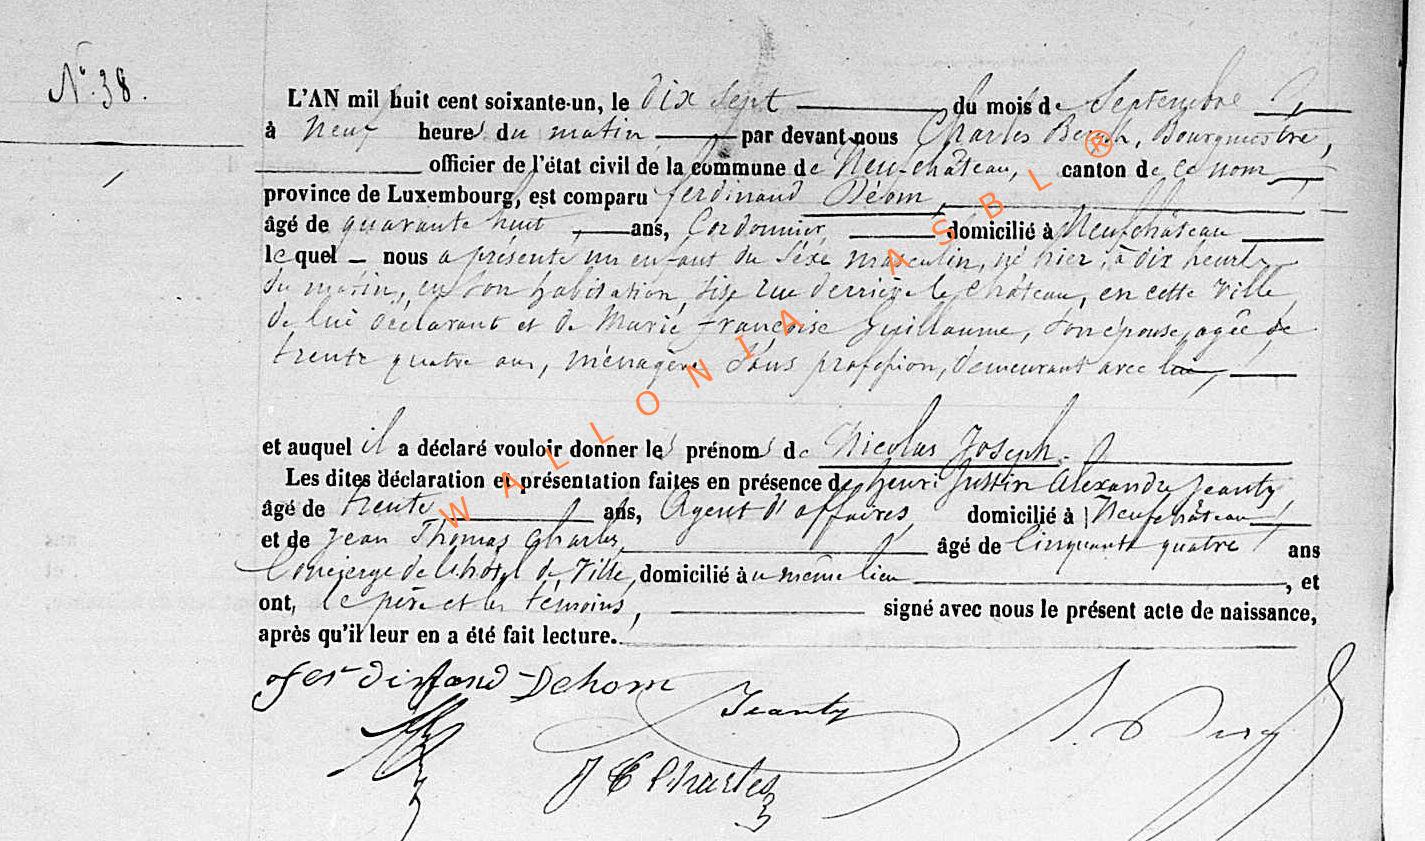 N° 38.
L'AN mil huit cent soixante-un, le dix sept du mois de Septembre
à Neuf heures du matin par devant nous Charles Bergh, Bourgmestre,
officier de l'état civil de la commune de Neufchâteau, canton de ce nom
province de Luxembourg, est comparu ferdinand Déom,
âgé de quarante huit ans, Cordonnier, domicilié à Neufchâteau
le quel nous a présenté un enfant du sexe masculin, né hier, à dix heures
du matin, en son habitation, sise rue derrière le château, en cette ville,
de lui déclarant et de Marie françoise Guillaume, son épouse, agée de
trente quatre ans, ménagère sans profession, demeurant avec lui,
et auquel il a déclaré vouloir donner les prénoms de Nicolas Joseph.
Les dites déclaration et présentation faites en présence de henri Justin Alexandre Jeanty,
âgé de trente ans, Agent d'affaires, domicilié à Neufchâteau
et de Jean Thomas Charles, âgé de Cinquante quatre ans
Concierge de l'hôtel de Ville, domicilié au même lieu, et
ont, le père et les témoins, signé avec nous le présent acte de naissance,
après qu'il leur en a été fait lecture.
ferdinand Dehom
Jeanty
J T Charles
WALLONIA ASBL ®